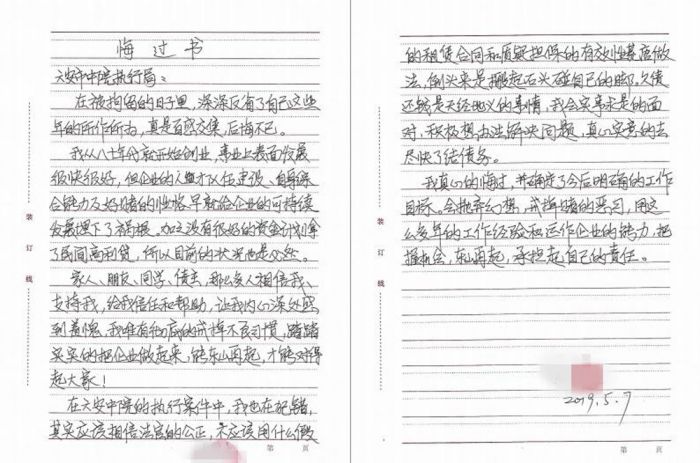 悔过书
六安市中院执行局：
在被拘留的日子里，深深反省了自己这些
年的所作所为，真是百感交集，后悔不已。
我从八十年代就开始创业，事业上表面发展
很快很好，但企业的人
合能力及好赌的性格早就给企业的可持续
发展埋下了祸根。加之没有很好的资金计划筹
了民间高利贷，所以目前的状况也是必然。
家人、朋友、同学、债主，那么多人相信我、
支持我，给我信任和帮助，让我内心深处感
到羞愧，我唯有彻底的戒掉不良习惯，踏踏
实实的把企业做起来，能东山再起，才能对得
起大家！
在六安中院的执行案件中，我也在犯错，
其实应该相信法官的公正，不应该用什么假
的租赁合同和质疑担保的有效性等
法，倒头来是搬起石头砸自己的脚，欠债
还钱是天经地义的事情，我会实事求是的面
对，积极想办法解决问题，真心实意的去
尽快了结债务。
我真心的悔过，并确定了今后明确的工作
目标。会抛弃幻想，戒掉赌的恶习，用这
么多年的工作经验和运作企业的能力，把
握机会，东山再起，承担起自己的责任。
2019.5.7
装
订
线
第 页
装
订
线
第 页